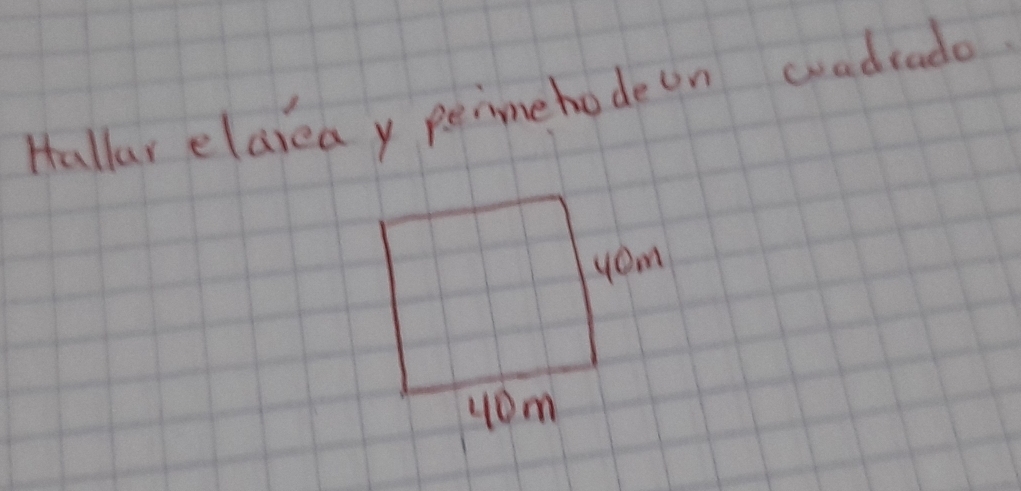 Hallar el área y perimetro de un cuadrado.
40m
40m